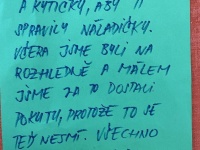 A KYTIČKY, ABY TI
SPRAVILY NÁLADIČKY.
VČERA JSME BYLI NA
ROZHLEDNĚ A MÁLEM
JSME ZA TO DOSTALI
POKUTU, PROTOŽE TO SE
TEĎ NESMÍ. VŠECHNO